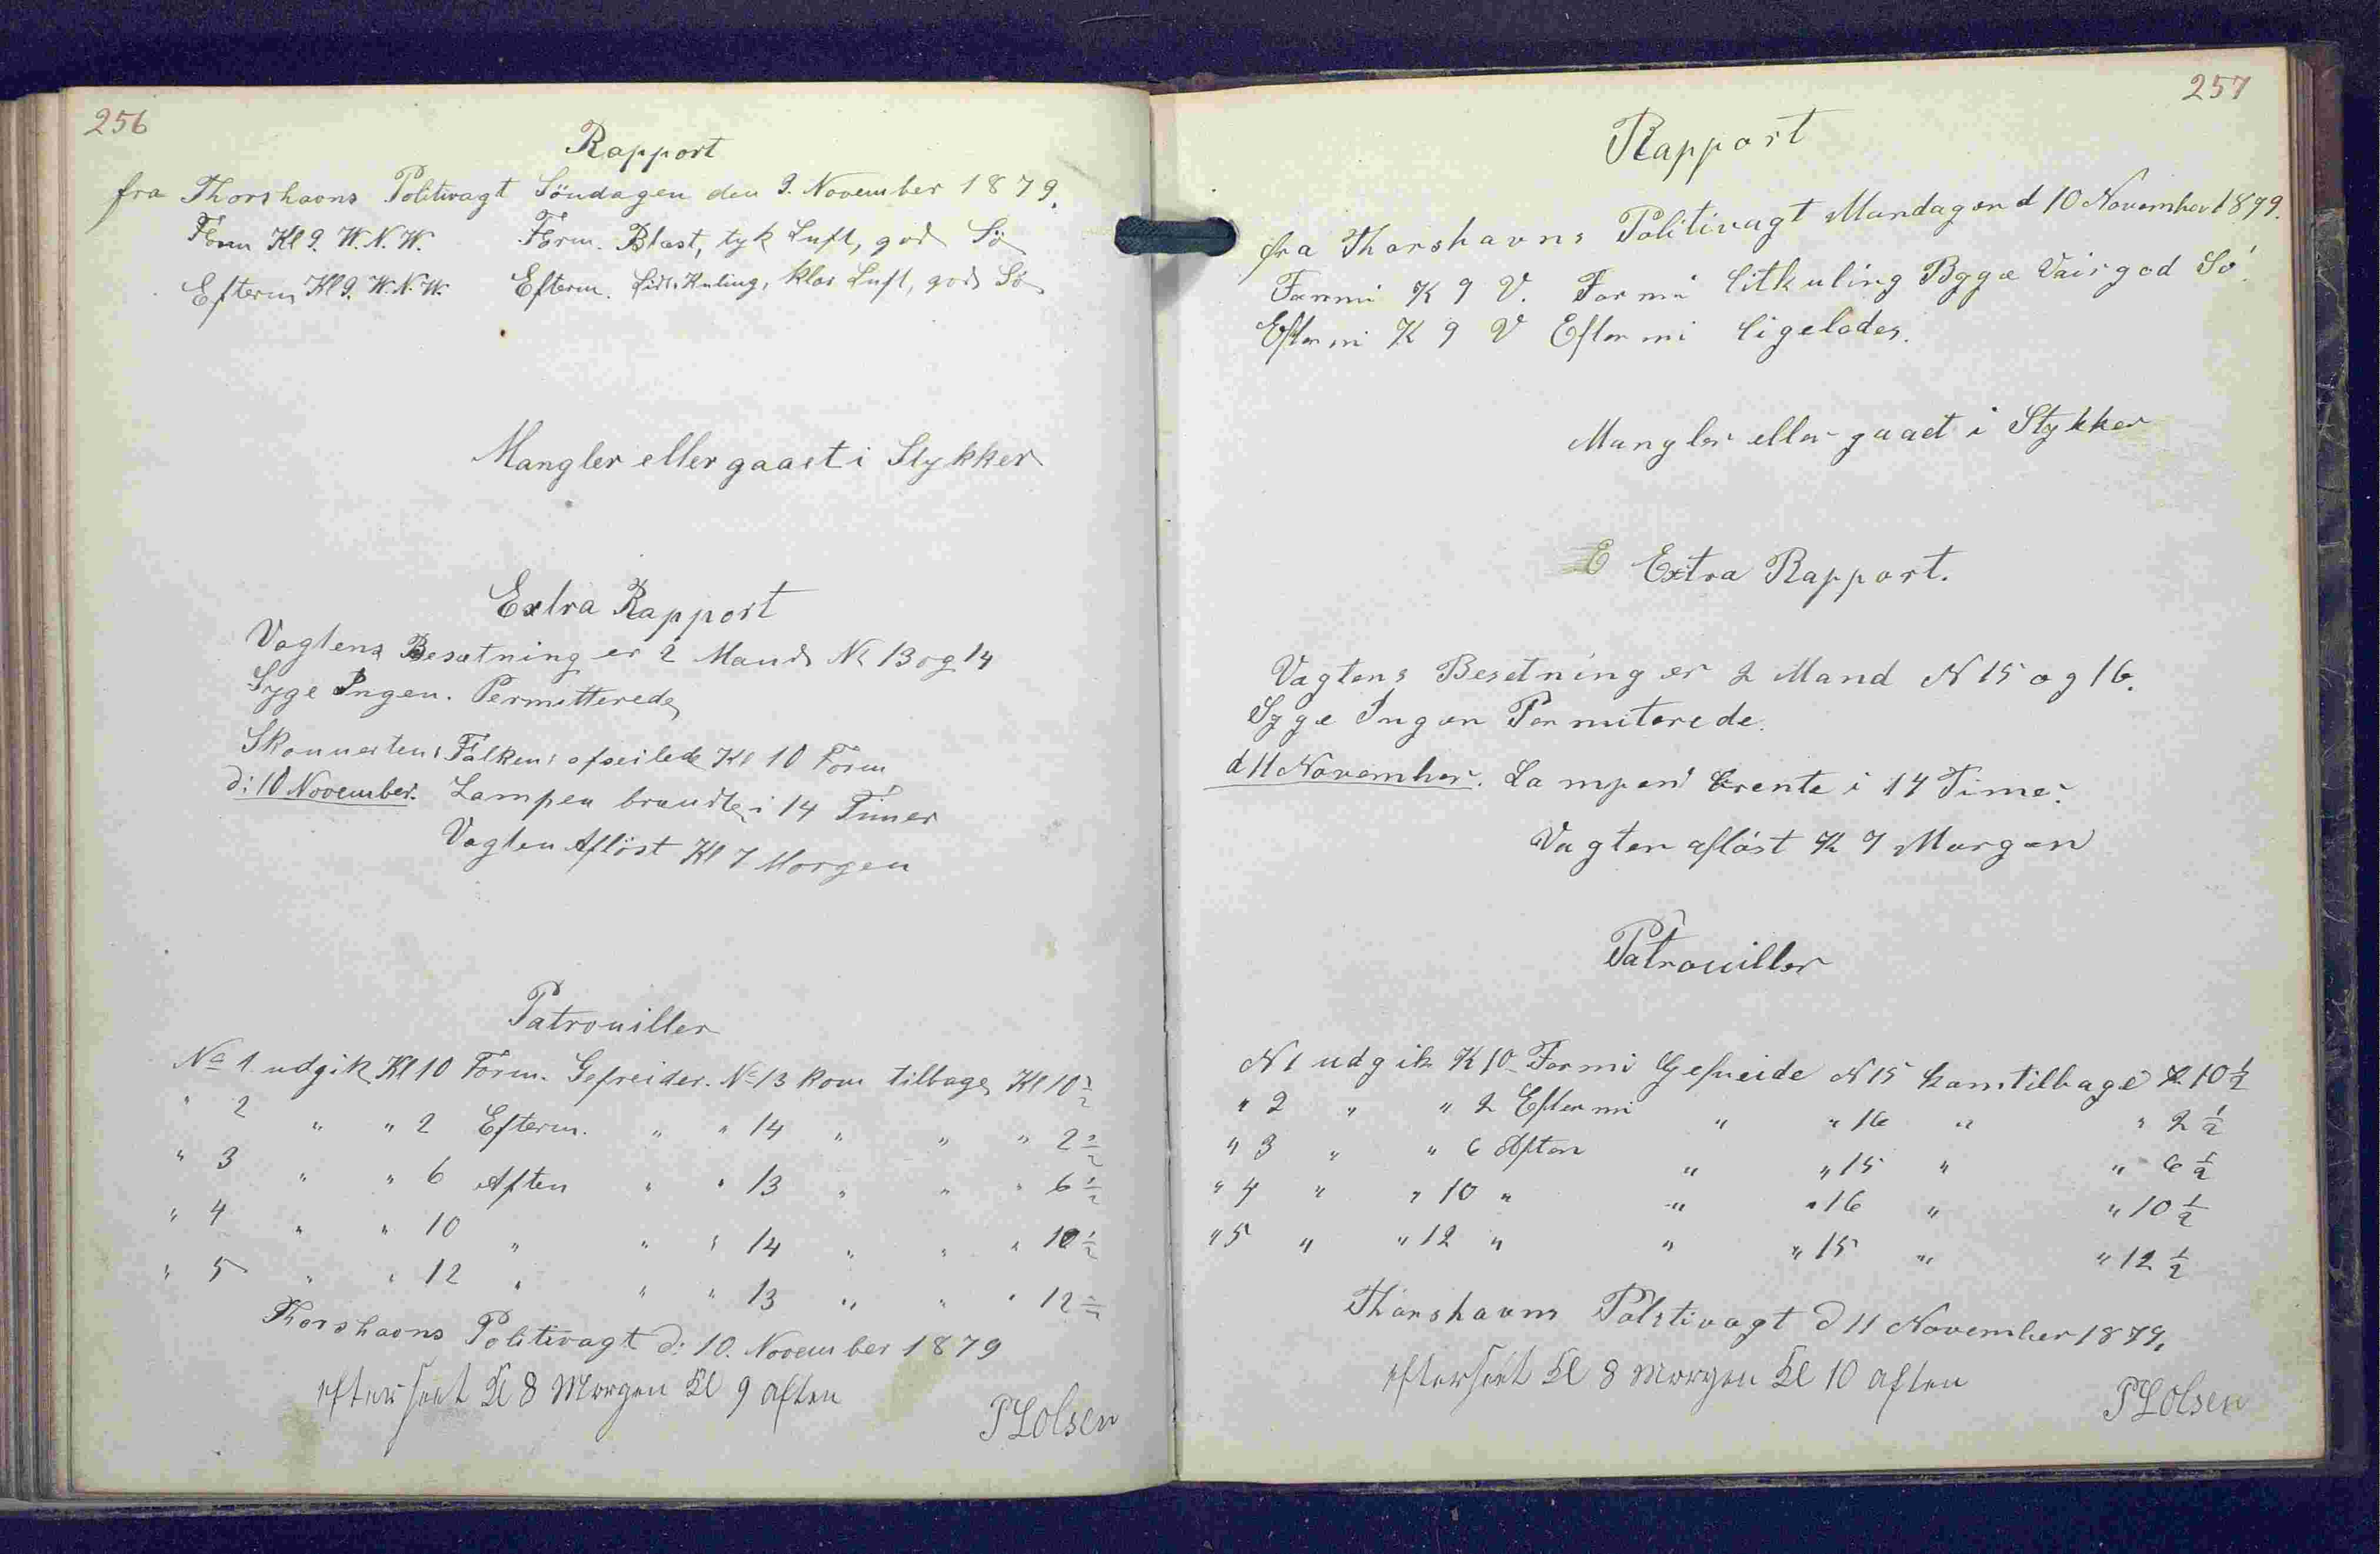 256
Rapport
fra Thorshavns Politivagt Söndagen den 9. November 1879.
Form Kl 9. W.N.W. Form. Blæst, tyk Luft, god Sö
Efterm Kl 9. W.N.W. Efterm. Lidt Kuling, klar Luft, god Sö
Mangler eller gaaet i Stykker
Extra Rapport
Vagtens Besætning er 2 Mand No 13 og 14
Syge Ingen. Permitterede
Skonnerten "Falken" afseilede Kl 10 Form
d: 10 November. Lampen brændte i 14 Timer
Vagten Aflöst Kl 7 Morgen
Patrouiller
No 1 udgik Kl 10 Form. Gefreider. No 13 kom tilbage Kl 10 1/2
" 2 " " 2 Efterm. " " 14 " " " 2 1/2
" 3 " " 6 Aften " " 13 " " " 6 1/2
" 4 " " 10 " " " 14 " " " 10 1/2
" 5 " " 12 " " " 13 " " " 12 1/2
Thorshavns Politivagt d: 10. November 1879
efterseet Kl 8 Morgen Kl 9 aften
PLOlsen
257
Rapport
fra Thorshavns Politivagt Mandagen d 10 November 1879.
Formi K 9 V. Formi Litkuling Byge Vair god Sö.
Eftermi K 9 V Eftermi ligelades.
Mangler eller gaaet i Stykker
E Extra Rapport.
Vagtens Besetning er 2 Mand N 15 og 16.
Syge Ingen Permiterede.
d 11 November. Lampen brente i 14 Time.
Vagten aflöst K 7 Morgen
Patrouiller
N 1 udgik K 10 Formi Gefreide N 15 kom tilbage K 10 1/2
" 2 " " 2 Eftermi " " 16 " " 2 1/2
" 3 " " 6 Aften " " 15 " " 6 1/2
" 4 " " 10 " " " 16 " " 10 1/2
" 5 " " 12 " " " 15 " " 12 1/2
Thorshavns Politivagt d 11 November 1879.
efterseet Kl 8 Morgen Kl 10 aften
PLOlsen